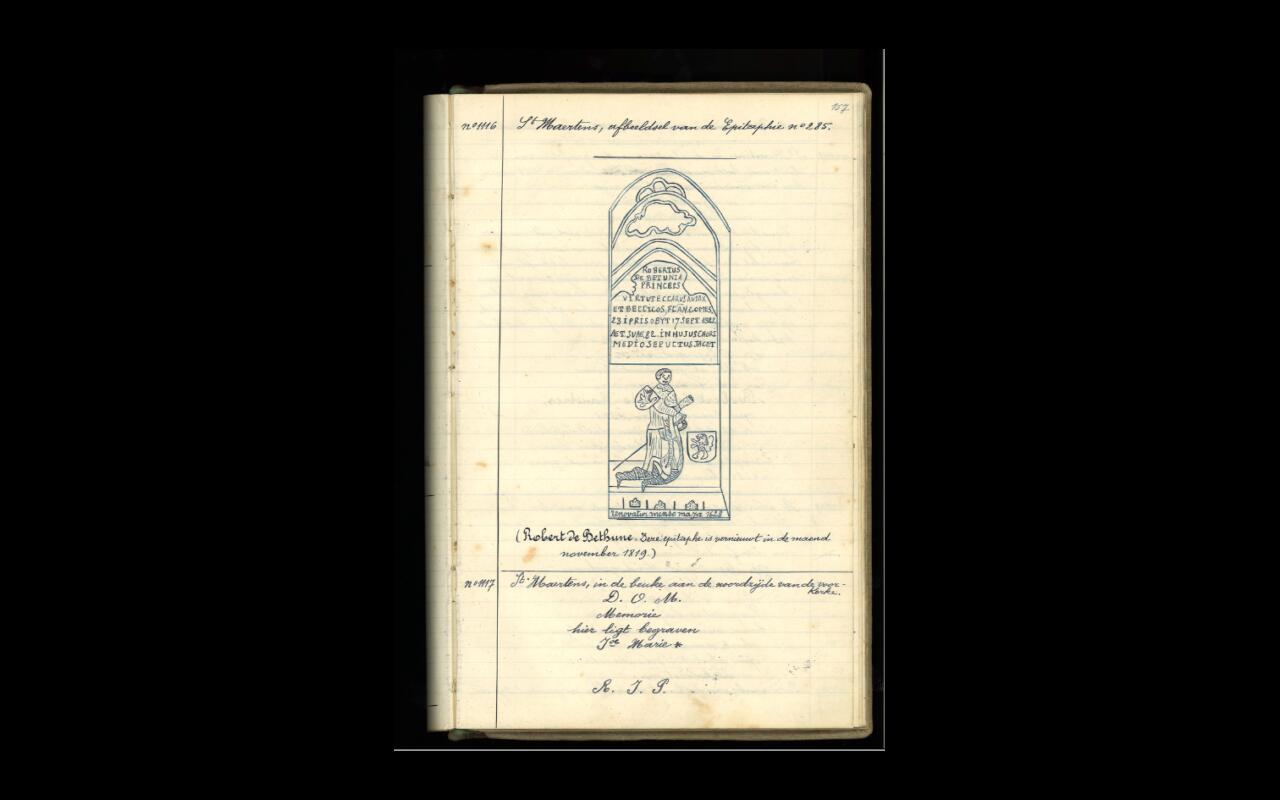 157
nº1116 St Maertens, afbeeldsel van de Epitaphie nº285.
ROBERTUS
DE BETUNIA
PRINCEPS
VIRTUTE CLARUS
ET BELLICOS, FLAN, COMES,
23 IPRIS OBYT 17 SEPT 1322
ÆT. SUAE 82. IN HUJUS CHORI
MEDIO SEPUCTUS JACET
renovatum mense maya 1628
(Robert de Bethune. Deze epitaphe is vernieuwt in de maend
november 1819.)
nº1117 St Maertens, in de beuke aan de noordzijde van de voor-
kerke.
D. O. M.
Memorie
hier ligt begraven
Marie *
R. I. P.